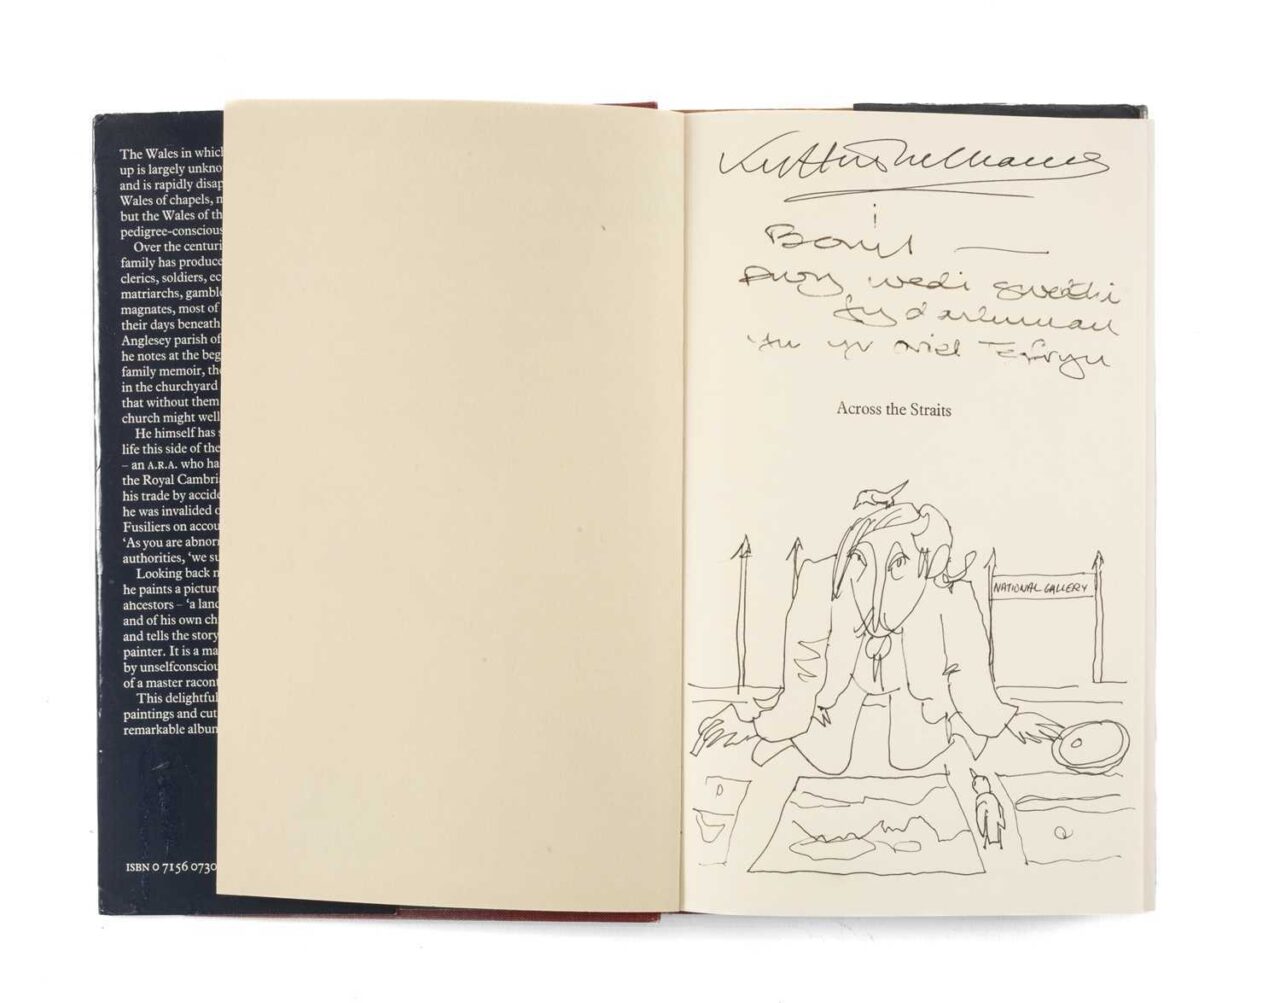 The Wales in whic
up is largely unkno
and is rapidly disap
Wales of chapels, n
but the Wales of th
pedigree-conscious
Over the centuri
family has produce
clerics, soldiers, ec
matriarchs, gambl
magnates, most of
their days beneath
Anglesey parish of
he notes at the beg
family memoir, th
in the churchyard
that without them
church might well
He himself has
life this side of the
– an A.R.A. who ha
the Royal Cambri
his trade by accide
he was invalided
Fusiliers on accou
'As you are abnor
authorities, 'we su
Looking back
he paints a picture
ancestors – 'a lanc
and of his own ch
and tells the story
painter. It is a ma
by unselfconsciou
of a master racont
This delightful
paintings and cut
remarkable albun
ISBN 0 7156 0730
Kyffin Williams
i
wedi
yr
Across the Straits
NATIONAL GALLERY